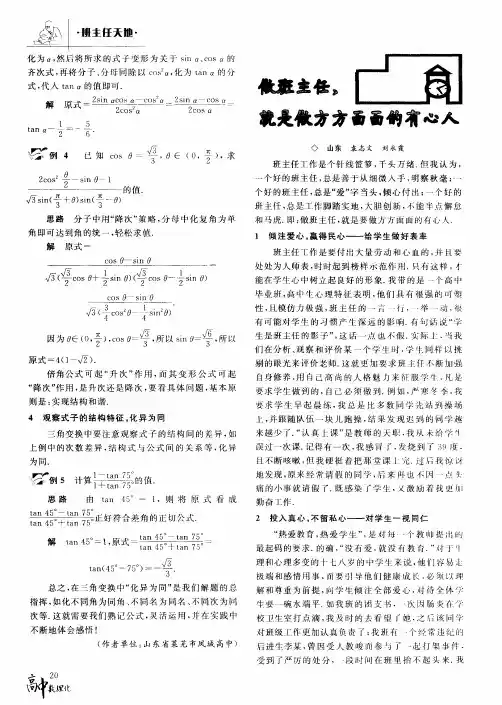 ·班主任天地·
化为 α,然后将所求的式子变形为关于 sin α、cos α 的
齐次式,再将分子、分母同除以 cos²α,化为 tan α 的分
式,代入 tan α 的值即可.
解 原式=(2sin αcos α−cos²α)/(2cos²α)=(2sin α−cos α)/(2cos α)=
tan α−1/2=−5/6.
例 4 已知 cos θ=√3/3,θ∈(0,π/2),求
(2cos²θ/2−sin θ−1)/(√3sin(π/3+θ)sin(π/3−θ))的值.
思路 分子中用“降次”策略,分母中化复角为单
角即可达到角的统一,轻松求值.
解 原式=
(cos θ−sin θ)/(√3(√3/2cos θ+1/2sin θ)(√3/2cos θ−1/2sin θ))=
(cos θ−sin θ)/(√3(3/4cos²θ−1/4sin²θ)).
因为 θ∈(0,π/2),cos θ=√3/3,所以 sin θ=√6/3,所以
原式=4(1−√2).
倍角公式可起“升次”作用,而其变形公式可起
“降次”作用,是升次还是降次,要看具体问题,基本原
则是:实现结构和谐.
4 观察式子的结构特征,化异为同
三角变换中要注意观察式子的结构间的差异,如
上例中的次数差异,结构式与公式间的关系等,化异
为同.
例 5 计算(1−tan 75°)/(1+tan 75°)的值.
思路 由 tan 45°=1,则将原式看成
(tan 45°−tan 75°)/(tan 45°+tan 75°)正好符合差角的正切公式.
解 tan 45°=1,原式=(tan 45°−tan 75°)/(tan 45°+tan 75°)=
tan(45°−75°)=−√3/3.
总之,在三角变换中“化异为同”是我们解题的总
指挥,如化不同角为同角、不同名为同名、不同次为同
次等.这就需要我们熟记公式,灵活运用,并在实践中
不断地体会感悟!
(作者单位:山东省莱芜市凤城高中)
20
高中数理化
做班主任,
就是做方方面面的有心人
◇ 山东 袁志文 刘永霞
班主任工作是个针线笸箩,千头万绪.但我认为,
一个好的班主任,总是善于从细微入手,明察秋毫;一
个好的班主任,总是“爱”字当头,倾心付出;一个好的
班主任,总是工作脚踏实地,大胆创新,不能半点懈怠
和马虎.即,做班主任,就是要做方方面面的有心人.
1 倾注爱心,赢得民心——给学生做好表率
班主任工作是要付出大量劳动和心血的,并且要
处处为人师表,时时起到榜样示范作用.只有这样,才
能在学生心中树立起良好的形象.我带的是一个高中
毕业班,高中生心理特征表明,他们具有很强的可塑
性,且模仿力极强,班主任的一言一行,一举一动,很
有可能对学生的习惯产生深远的影响.有句话说“学
生是班主任的影子”,这话一点也不假.实际上,当我
们在分析、观察和评价某一个学生时,学生同样以挑
剔的眼光来评价老师.这就更加要求班主任不断加强
自身修养,用自己高尚的人格魅力来征服学生.凡是
要求学生做到的,自己必须做到.例如,严寒冬季,我
要求学生早起晨练,我总是比多数同学先站到操场
上,并跟随队伍一块儿跑操,结果发现迟到的同学越
来越少了.“认真上课”是教师的天职,我从未给学生
误过一次课.记得有一次,我感冒了,发烧到了 39 度,
且不断咳嗽,但我硬挺着把那堂课上完.过后我惊讶
地发现,原来经常请假的同学,后来再也不因一点头
痛的小事就请假了.既感染了学生,又激励着我更加
勤奋工作.
2 投入真心,不留私心——对学生一视同仁
“热爱教育,热爱学生”,是对每一个教师提出的
最起码的要求.的确,“没有爱,就没有教育.”对于生
理和心理多变的十七八岁的中学生来说,他们容易走
极端和感情用事,而要引导他们健康成长,必须以理
解和尊重为前提,向学生倾注全部爱心,对待全体学
生要一碗水端平.如我班的团支书,一次因肠炎在学
校卫生室打点滴,我及时的去看望了她,之后该同学
对班级工作更加认真负责了;我班有一个经常违纪的
后进生李某,曾因受人教唆而参与了一起打架事件,
受到了严厉的处分,一段时间在班里抬不起头来.我